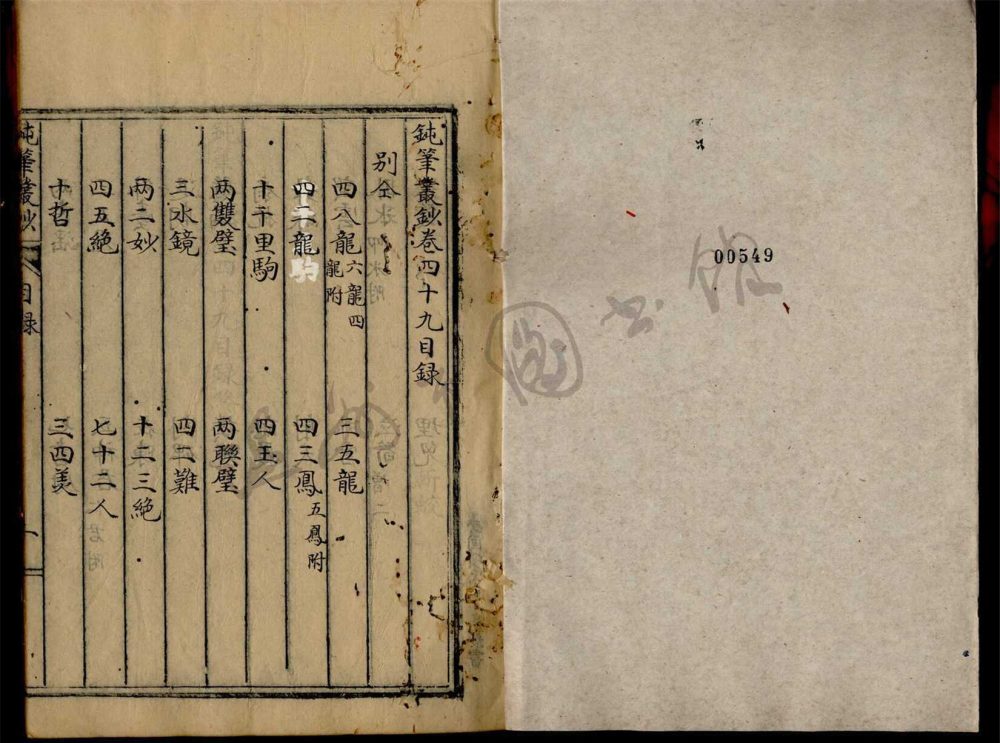 00549
鈍筆叢鈔卷四十九目録
别仝
四八龍 六龍四龍附 三五龍
四二龍 四三鳳 五鳳附
十千里駒 四玉人
两雙璧 两聯璧
三水鏡 四二難
两二妙 十二三絶
四五絶 七十二人
十哲 三四美
鈍筆叢鈔 目録 一